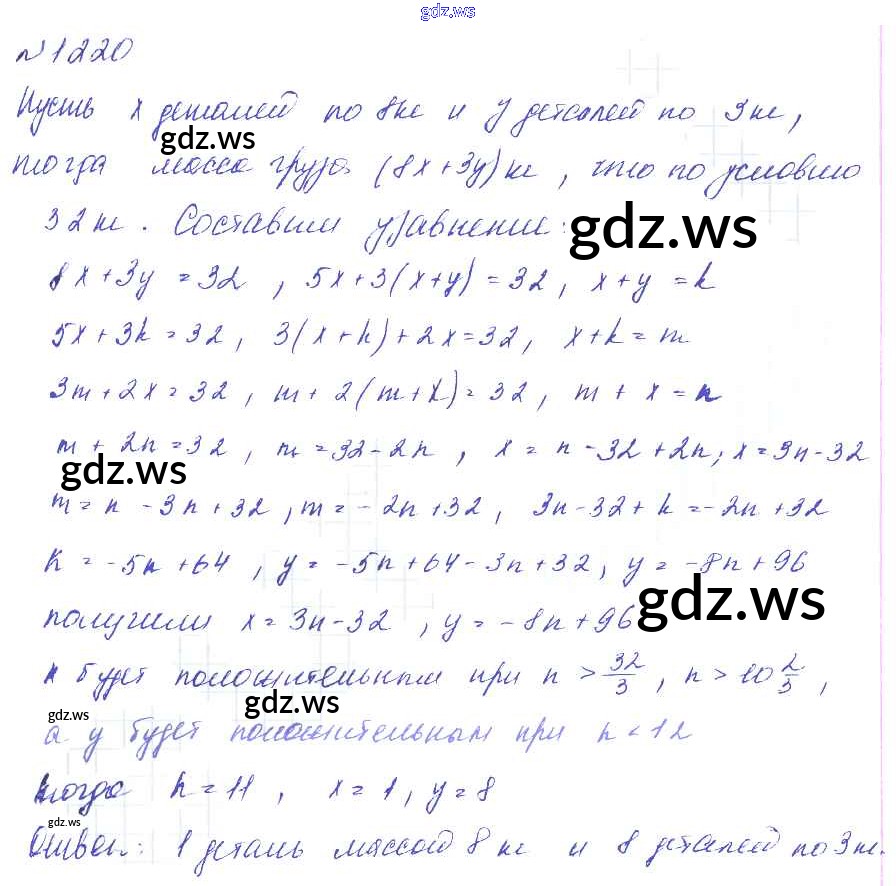 gdz.ws
№1220
Пусть x деталей по 8кг и y деталей по 3кг,
gdz.ws
тогда масса груза (8x+3y) кг, что по условию
32кг. Составим уравнение:
gdz.ws
8x+3y=32, 5x+3(x+y)=32, x+y=k
5x+3k=32, 3(x+k)+2x=32, x+k=m
3m+2x=32, m+2(m+x)=32, m+x=n
m+2n=32, m=32-2n, x=n-32+2n; x=3n-32
gdz.ws
m=n-3n+32, m=-2n+32, 3n-32+k=-2n+32
k=-5n+64, y=-5n+64-3n+32, y=-8n+96
gdz.ws
получили x=3n-32, y=-8n+96
x будет положительным при n>32/3, n>10 2/3,
gdz.ws
gdz.ws
а y будет положительным при n<12
тогда n=11, x=1, y=8
gdz.ws
Ответ: 1 деталь массой 8кг и 8 деталей по 3кг.